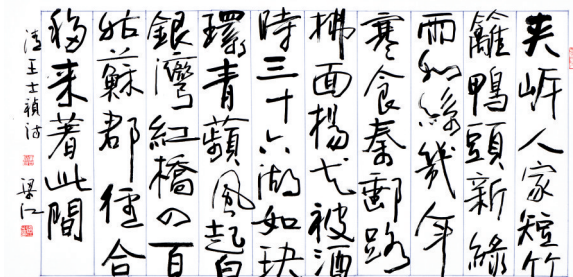 夾崕人家短竹
籬鴨頭新綠
雨如絲幾年
寒食秦郵路
拂面楊花被酒
時三十六湖如玦
環青蘋風起白
銀灣紅橋四百
姑蘇郡徑合
移来著此間
清王士禎詩
梁江